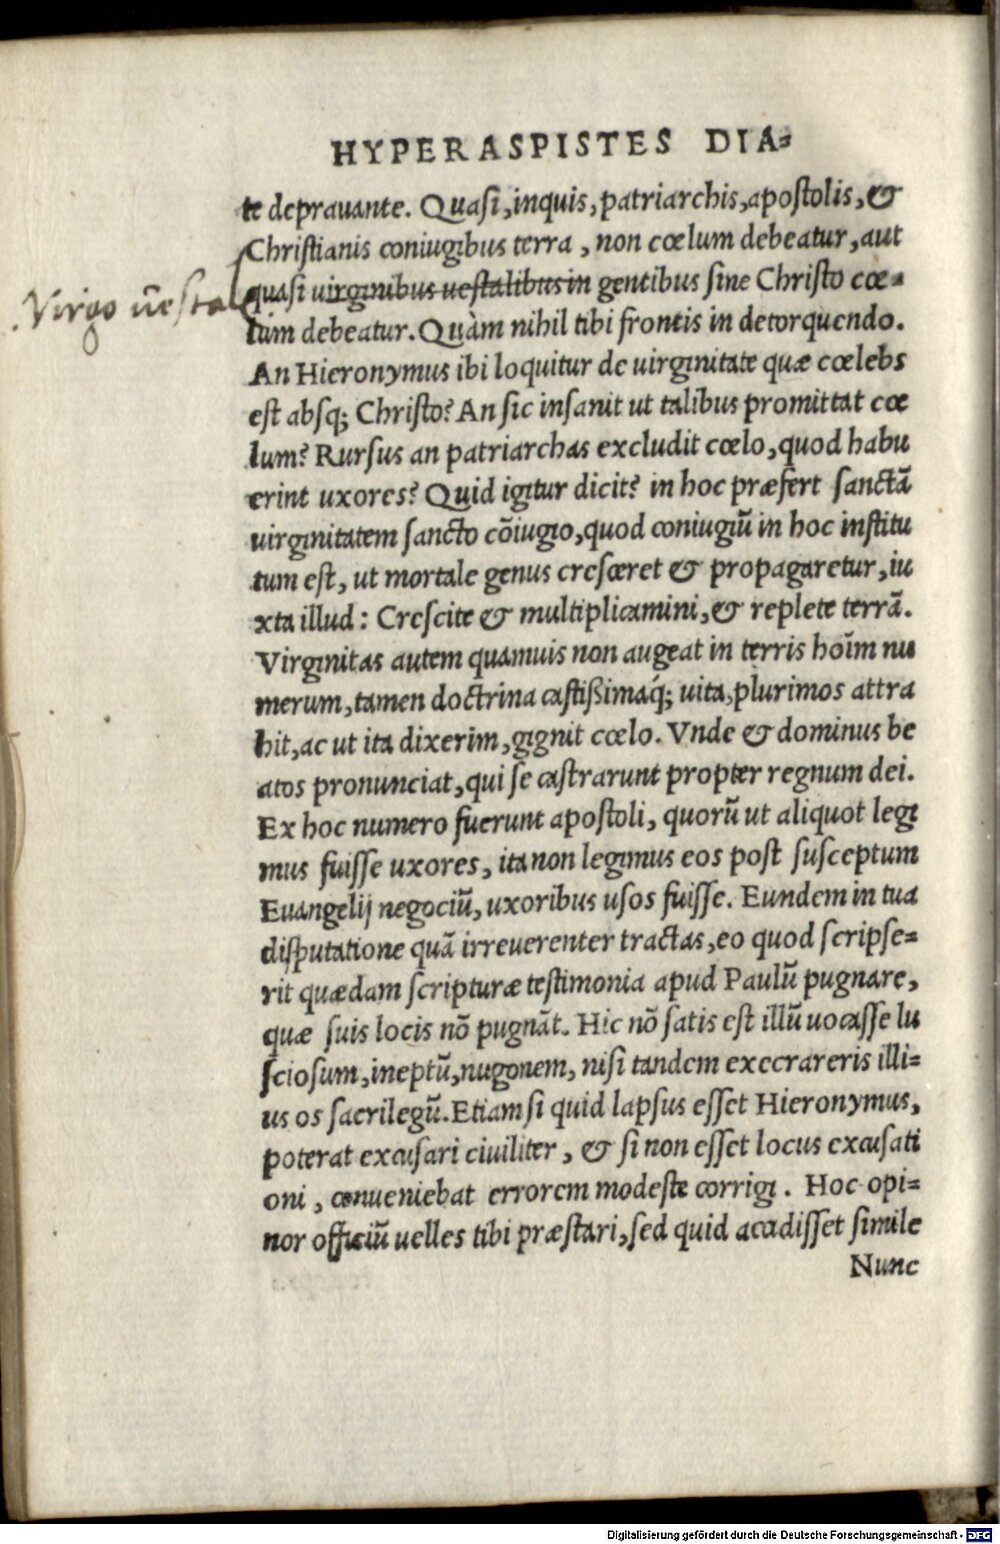 HYPERASPISTES DIA⸗
te deprauante. Quaſi, inquis, patriarchis, apoſtolis, &
Chriſtianis coniugibus terra, non cœlum debeatur, aut
quaſi uirginibus ueſtalibus in gentibus ſine Chriſto cœ⸗
Virgo ūestal
lum debeatur. Quàm nihil tibi frontis in detorquendo.
An Hieronymus ibi loquitur de uirginitate quæ cœlebs
eſt abſq; Chriſto? An ſic inſanit ut talibus promittat cœ
lum? Rurſus an patriarchas excludit cœlo, quod habu
erint uxores? Quid igitur dicit? in hoc præfert ſanctā
uirginitatem ſancto cōiugio, quod coniugiū in hoc inſtitu
tum eſt, ut mortale genus creſceret & propagaretur, iu
xta illud: Creſcite & multiplicamini, & replete terrā.
Virginitas autem quamuis non augeat in terris hoīm nu
merum, tamen doctrina caſtiſsimaq́; uita, plurimos attra
hit, ac ut ita dixerim, gignit cœlo. Vnde & dominus be
atos pronunciat, qui ſe caſtrarunt propter regnum dei.
Ex hoc numero fuerunt apoſtoli, quorū ut aliquot legi
mus fuiſſe uxores, ita non legimus eos poſt ſuſceptum
Euangelij negociū, uxoribus uſos fuiſſe. Eundem in tua
diſputatione quā irreuerenter tractas, eo quod ſcripſe⸗
rit quædam ſcripturæ teſtimonia apud Paulū pugnare,
quæ ſuis locis nō pugnāt. Hic nō ſatis eſt illū uocaſſe lu
ſcioſum, ineptū, nugonem, niſi tandem execrareris illi⸗
us os ſacrilegū. Etiamſi quid lapſus eſſet Hieronymus,
poterat excuſari ciuiliter, & ſi non eſſet locus excuſati
oni, conueniebat errorem modeſte corrigi. Hoc opi⸗
nor officiū uelles tibi præſtari, ſed quid accidiſſet ſimile
Nunc
Digitalisierung gefördert durch die Deutsche Forschungsgemeinschaft - DFG